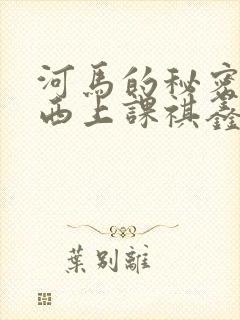 河馬的秘密
西上課祺鑫
葉別離